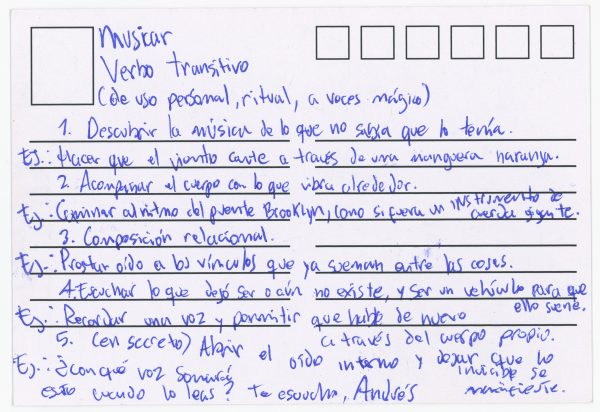 Musicar
Verbo transitivo
(de uso personal, ritual, a veces mágico)
1. Descubrir la música de lo que no sabía que lo tenía.
Ej.: Hacer que el viento cante a través de una manguera naranja.
2. Acompañar el cuerpo con lo que vibra alrededor.
Ej.: Caminar al ritmo del puente Brooklyn, como si fuera un instrumento de
cuerda gigante.
3. Composición relacional.
Ej.: Prestar oído a los vínculos que ya suenan entre las cosas.
4. Escuchar lo que dejó ser o aún no existe, y ser un vehículo para que
ello suene.
Ej.: Recordar una voz y permitir que hable de nuevo
a través del cuerpo propio.
5. (en secreto) Abrir el oído interno y dejar que lo
invisible se
manifieste.
Ej.: ¿Con qué voz sonarás
esto cuando lo leas? Te escucho, Andrés